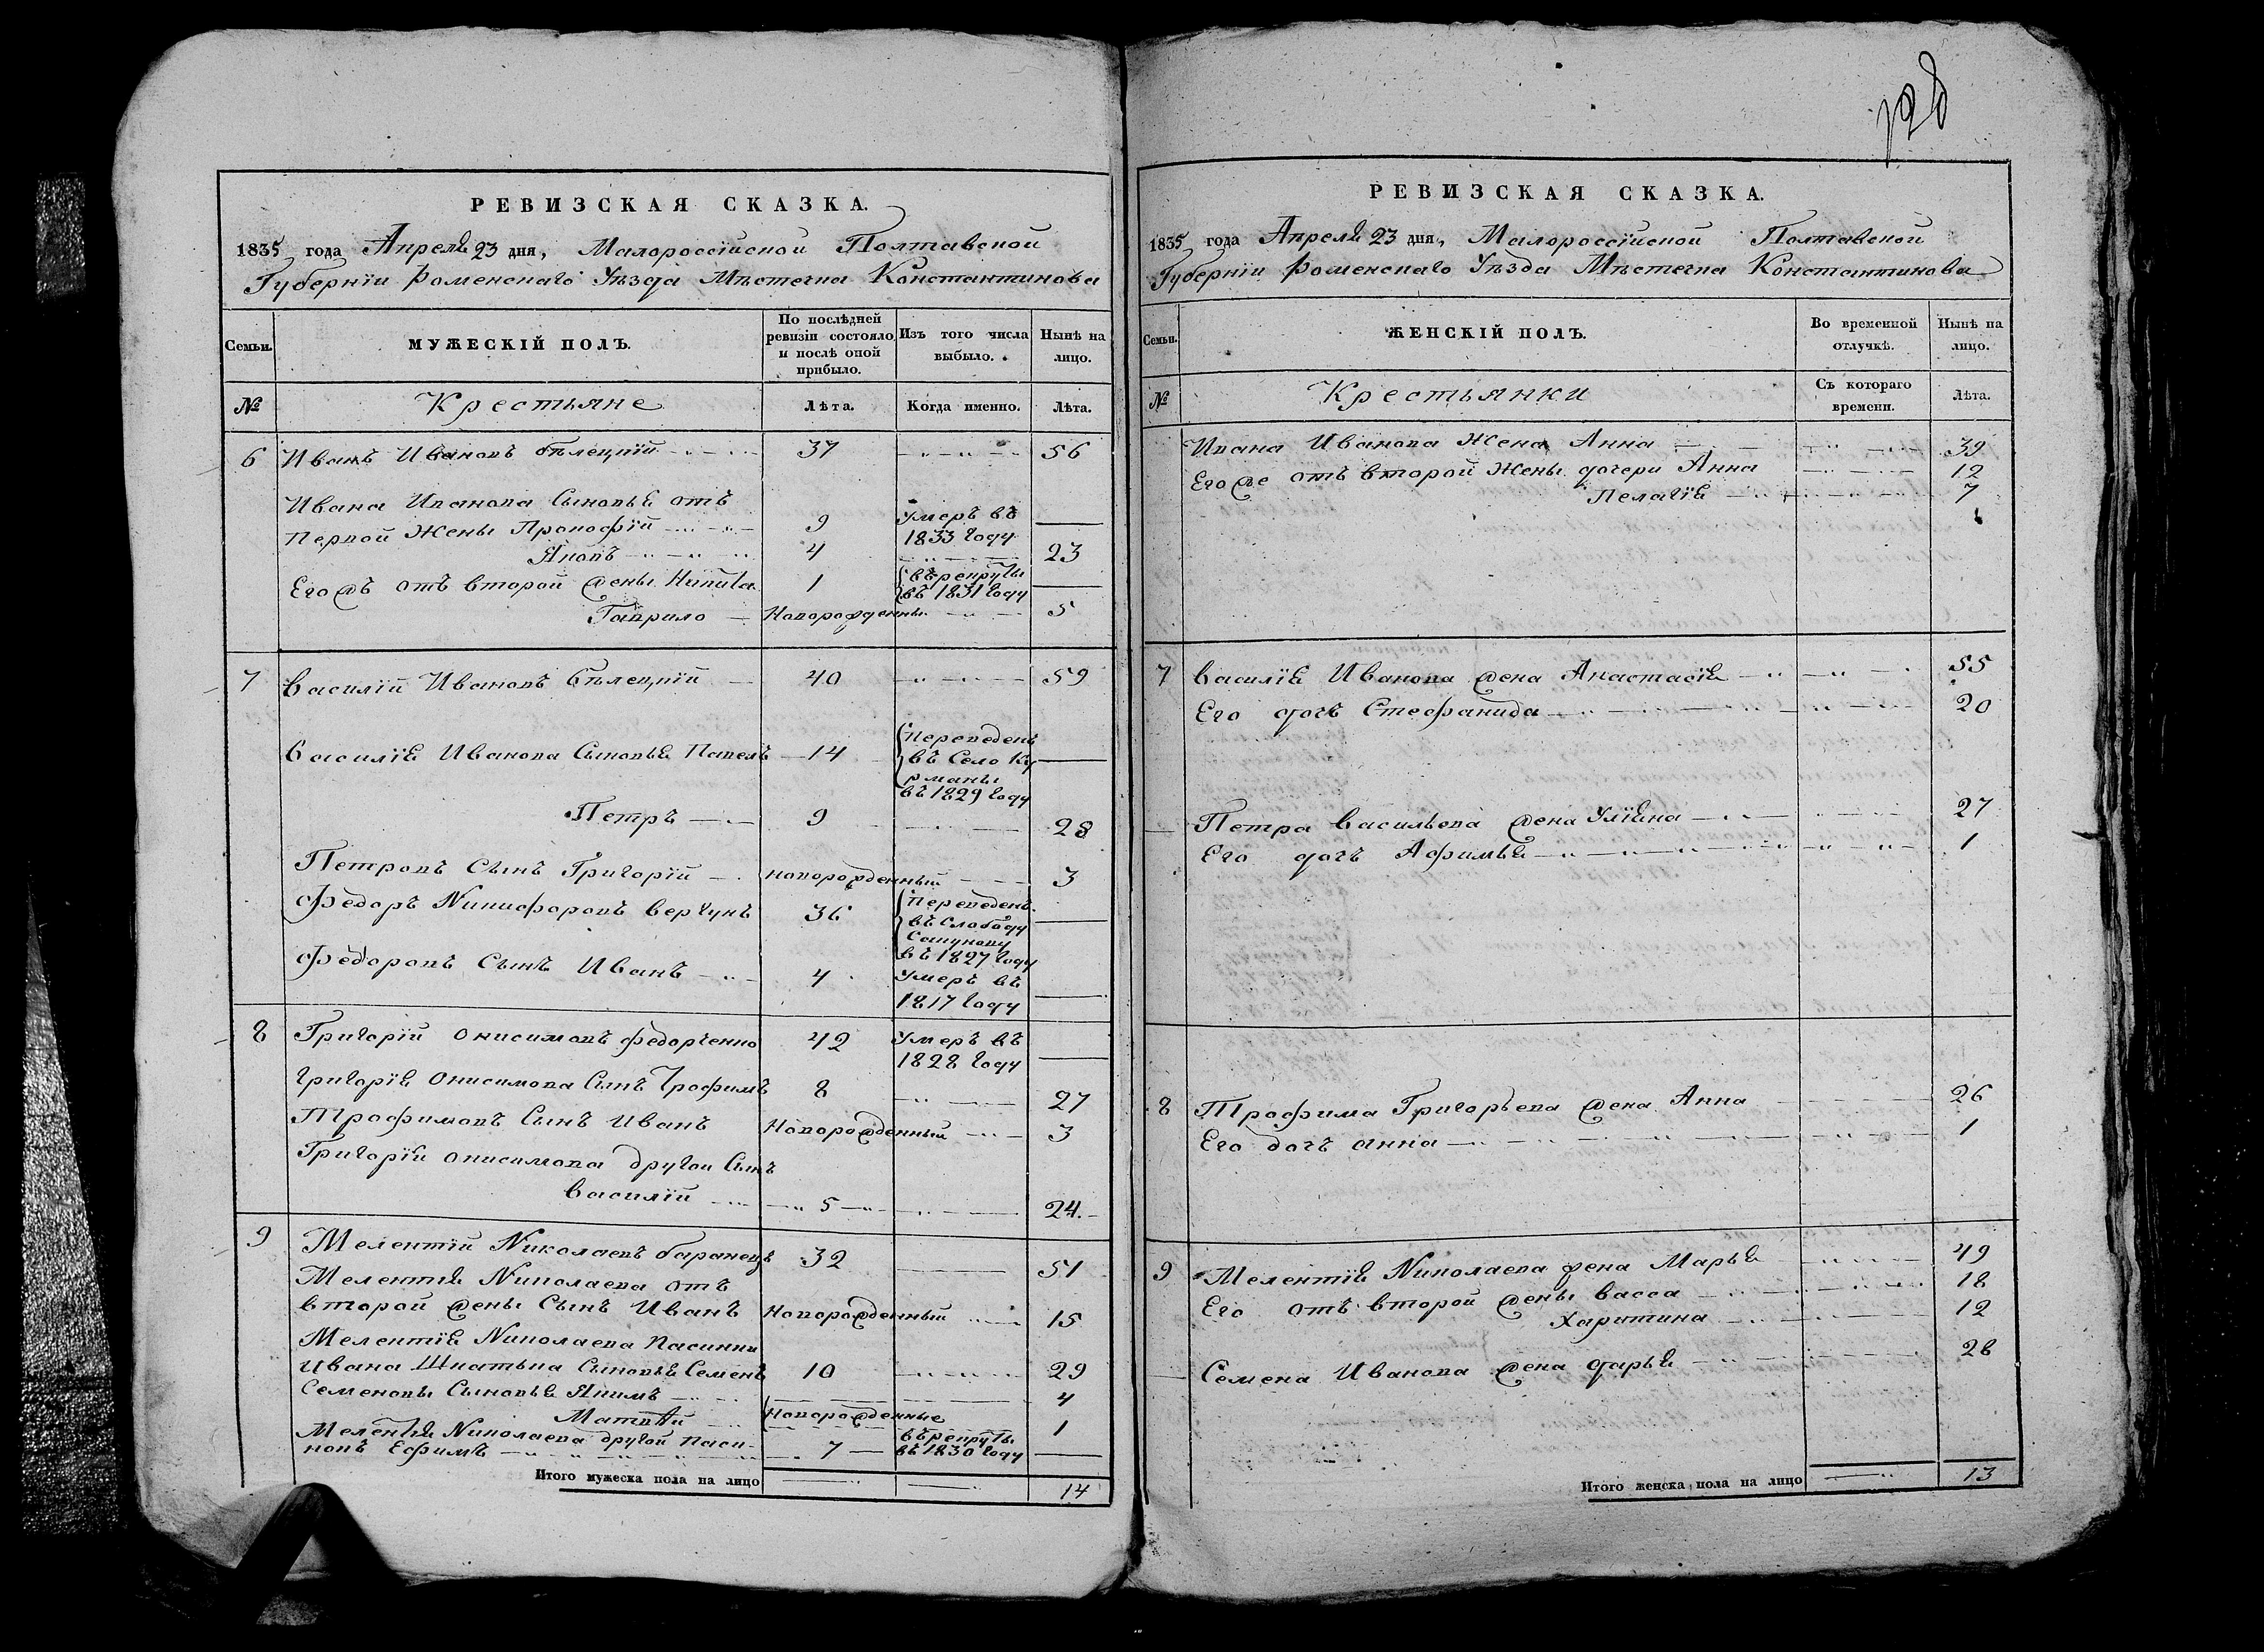 128
РЕВИЗСКАЯ СКАЗКА.
1835 года Апреля 23 дня, Малороссійской Полтавской
Губерніи Роменскаго Уѣзда Мѣстечка Константинова
Семьи.
МУЖЕСКІЙ ПОЛЪ.
По послѣдней ревизіи состояло и послѣ оной прибыло.
Изъ того числа выбыло.
Нынѣ на лицо.
№
Крестьяне
Лѣта.
Когда именно.
Лѣта.
6 Иванъ Ивановъ Бѣлецкій 37 56
Ивана Иванова Сыновья отъ
Первой Жены Прокофій 9 Умеръ въ 1833 году
Яковъ 4 23
Егожъ отъ второй жены Никита 1 Въ рекруты въ 1831 году
Гаврило Новорожденны 5
7 Василій Ивановъ Бѣлецкій 40 59
Василія Иванова Сыновья Павелъ 14 Переведенъ въ Село Курманы въ 1829 году
Петръ 9 28
Петровъ Сынъ Григорій новорожденный 3
Федоръ Никифоровъ Вергунъ 36 Переведенъ въ Слободу въ 1827 году
Федоровъ Сынъ Иванъ 4 Умеръ въ 1817 году
8 Григорій Онисимовъ Федорченко 42 Умеръ въ 1828 году
Григорія Онисимова Сынъ Трофимъ 8 27
Трофимовъ Сынъ Иванъ Новорожденный 3
Григорія Онисимова другой Сынъ
Василій 5 24.
9 Мелентій Николаевъ Баранецъ 32 51
Мелентія Николаева отъ
второй жены Сынъ Иванъ Новорожденный 15
Мелентія Николаева пасинки
Ивана Сыновья Семенъ 10 29
Семеновы Сыновья Якимъ 4
Матвѣй Новорожденные 1
Мелентія Николаева другой паси-
нокъ Ефимъ 7 въ рекруты въ 1830 году
Итого мужеска пола на лицо 14
РЕВИЗСКАЯ СКАЗКА.
1835 года Апреля 23 дня, Малороссійской Полтавской
Губерніи Роменскаго Уѣзда Мѣстечка Константинова
Семьи.
ЖЕНСКІЙ ПОЛЪ.
Во временной отлучкѣ.
Нынѣ на лицо.
№
Крестьянки
Съ котораго времени.
Лѣта.
Ивана Иванова Жена Анна 39
Егоже отъ второй Жены дочери Анна 12
Пелагія 7
7 Василія Иванова жена Анастасія 55
Его дочь Стефанида 20
Петра Васильева жена Уліяна 27
Его дочь Афимья 1
8 Трофима Григорьева жена Анна 26
Его дочь Анна 1
9 Мелентія Николаева жена Марья 49
Его отъ второй жены Васса 18
Харитина 12
Семена Иванова жена Дарья 28
Итого женска пола на лицо 13